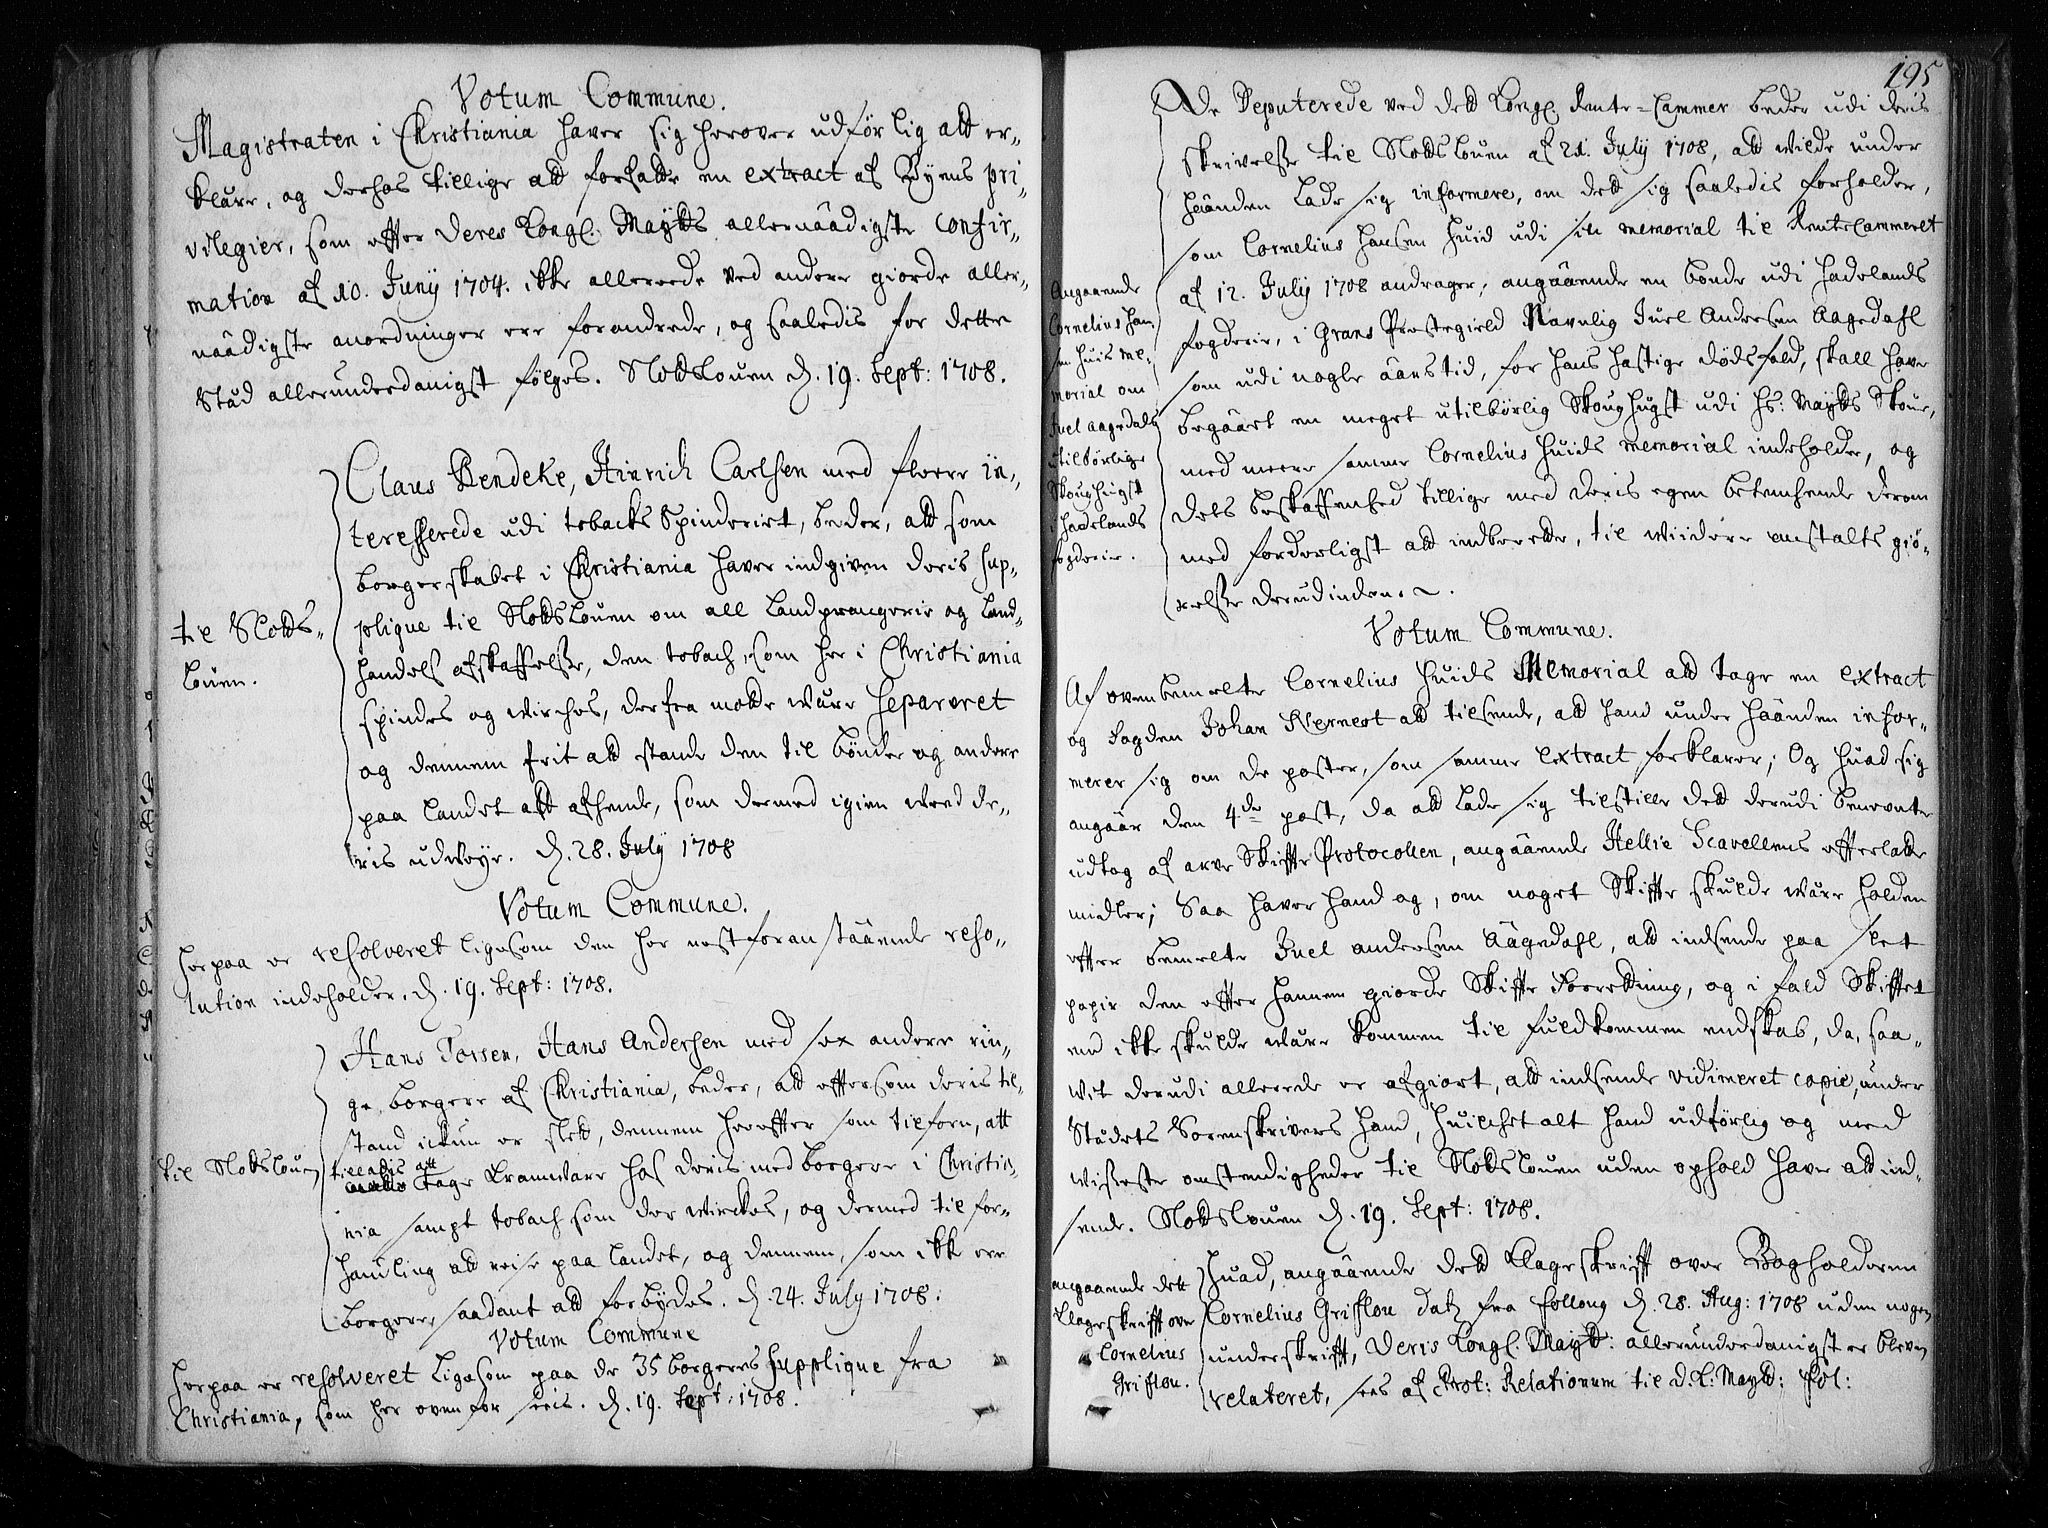 Votum Commune.
Magistraten i Christiania haver sig herover udførlig att er-
klære, og derhos tillige att forfatte en extract af Byens pri-
vilegier, som effter Deres Kongl. Maytts allernaadigste confir-
mation af 10. Juny 1704. ikke allereede ved andere giorde aller-
naadigste anordninger ere forandrede, og saaledis for dette
Stæd allerunderdanigst følges. Slottslouen d. 19. Sept: 1708.
til Slotts-
louen.
Claus Bendeke, Hinrich Carlsen med fleere in-
teresserede udi tobacks Spinderiet, beder, att som
borgerskabet i Christiania haver indgiven deris sup-
plique til Slottslouen om all Landprangerie og Land-
handels afskaffelsse, den tobach, som her i Christiania
spindes og wirches, derfra motte være separeret
og dennem frit att stande den til bønder og andere
paa Landet att afhende, som dermed igien weed de-
ris udweye. d. 28. July 1708
Votum Commune.
Herpaa er resolveret ligesom den her nest foranstaaende reso-
lution indeholder. d. 19. Sept: 1708.
til Slottslouen
Hans Torsen, Hans Andersen med sex andere rin-
ge borgere af Christiania, beder, att effersom deris til-
stand ickun er slett, dennem hereffter som tilforn, att
tilladis att
tage Kramware hos deris medborgere i Christia-
nia sampt tobach som der wirckes, og dermed til for-
handling att reise paa Landet, og dennem, som ikke ere
borgere, saadant att forbydes. d. 24. July 1708.
Votum Commune
Herpaa er resolveret ligesom paa de 35 borgeres supplique fra
Christiania, som her ovenfor sees. d. 19. Sept: 1708.
195
De Deputerede ved dett Kongl. Rente-Cammer beder udi deris
skrivelsse til Slottslouen af 21. July 1708, att wilde under
haanden lade sig informere, om dett sig saaledis forholder,
som Cornelius Hansen Huid udi sin memorial til RenteCammeret
af 12. July 1708 andrager, angaaende en bonde udi Hadelands
fogderie, i Grans Prestegield Navnlig Juel Andersen Aagedahl
som udi nogle aars tid, for hans hastige dødsfald, skall have
begaaet en meget utilbørlig Skoughugst udi Hs: Maytts Skoue,
med meere samme Cornelius Huids memorial indeholder, og
dets beskaffenhed tillige med deris egen betenkende derom
med forderligst att indberette, til wiidere anstalts giø-
relsse derudinden.
Angaaende
Cornelius Han-
sen Huis me-
morial om
Juel Aagedals
utilbørlige
Skoughugst
i Hadelands
fogderie.
Votum Commune.
Af ovenbemelte Cornelius Huids Memorial att tage en extract
og Fogden Johan Wernest att tilsende, att hand under haanden infor-
merer sig om de poster, som samme extract forklarer; Og huad sig
angaar den 4de post, da att lade sig tilstille dett derudi benevnte
udtog af arve Skiffte Protocollen, angaaende Hellie Scavellens effterlatte
midler; Saa haver hand og, om noget Skiffte skulde være holden
effter bemelte Juel andersen Aagedahl, att indsende paa slet
papir den effter hannem giorde Skiffte Forretning, og i fald Skifftet
end ikke skulde være kommen til fuldkommen endskab, da, saa-
wit derudi allerede er afgiort, att indsende vidimeret copie, under
Stædets Sorenskrivers hand, huilchet alt hand udførlig og med
wisseste omstendigheder til Slottslouen uden ophold haver att ind-
sende. Slottslouen d. 19. Sept: 1708.
angaaende dett
Klageskrifft over
Cornelius
Grifflou.
Huad, angaaende dett Klageskrifft over Bogholderen
Cornelius Grifflou dat. fra Follong d. 28. Aug: 1708 uden nogen
underskrifft, Deris Kongl. Maytt: allerunderdanigst er bleven
relateret, sees af Prot: Relationum til D. K: Maytt: fol: